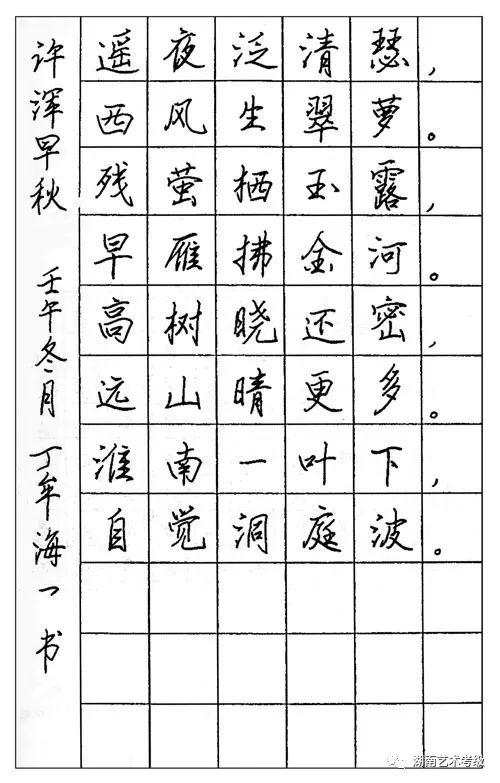 遥夜泛清瑟，
西风生翠萝。
残萤栖玉露，
早雁拂金河。
高树晓还密，
远山晴更多。
淮南一叶下，
自觉洞庭波。
许浑早秋 壬午冬月 丁年海一书
湖南艺术考级